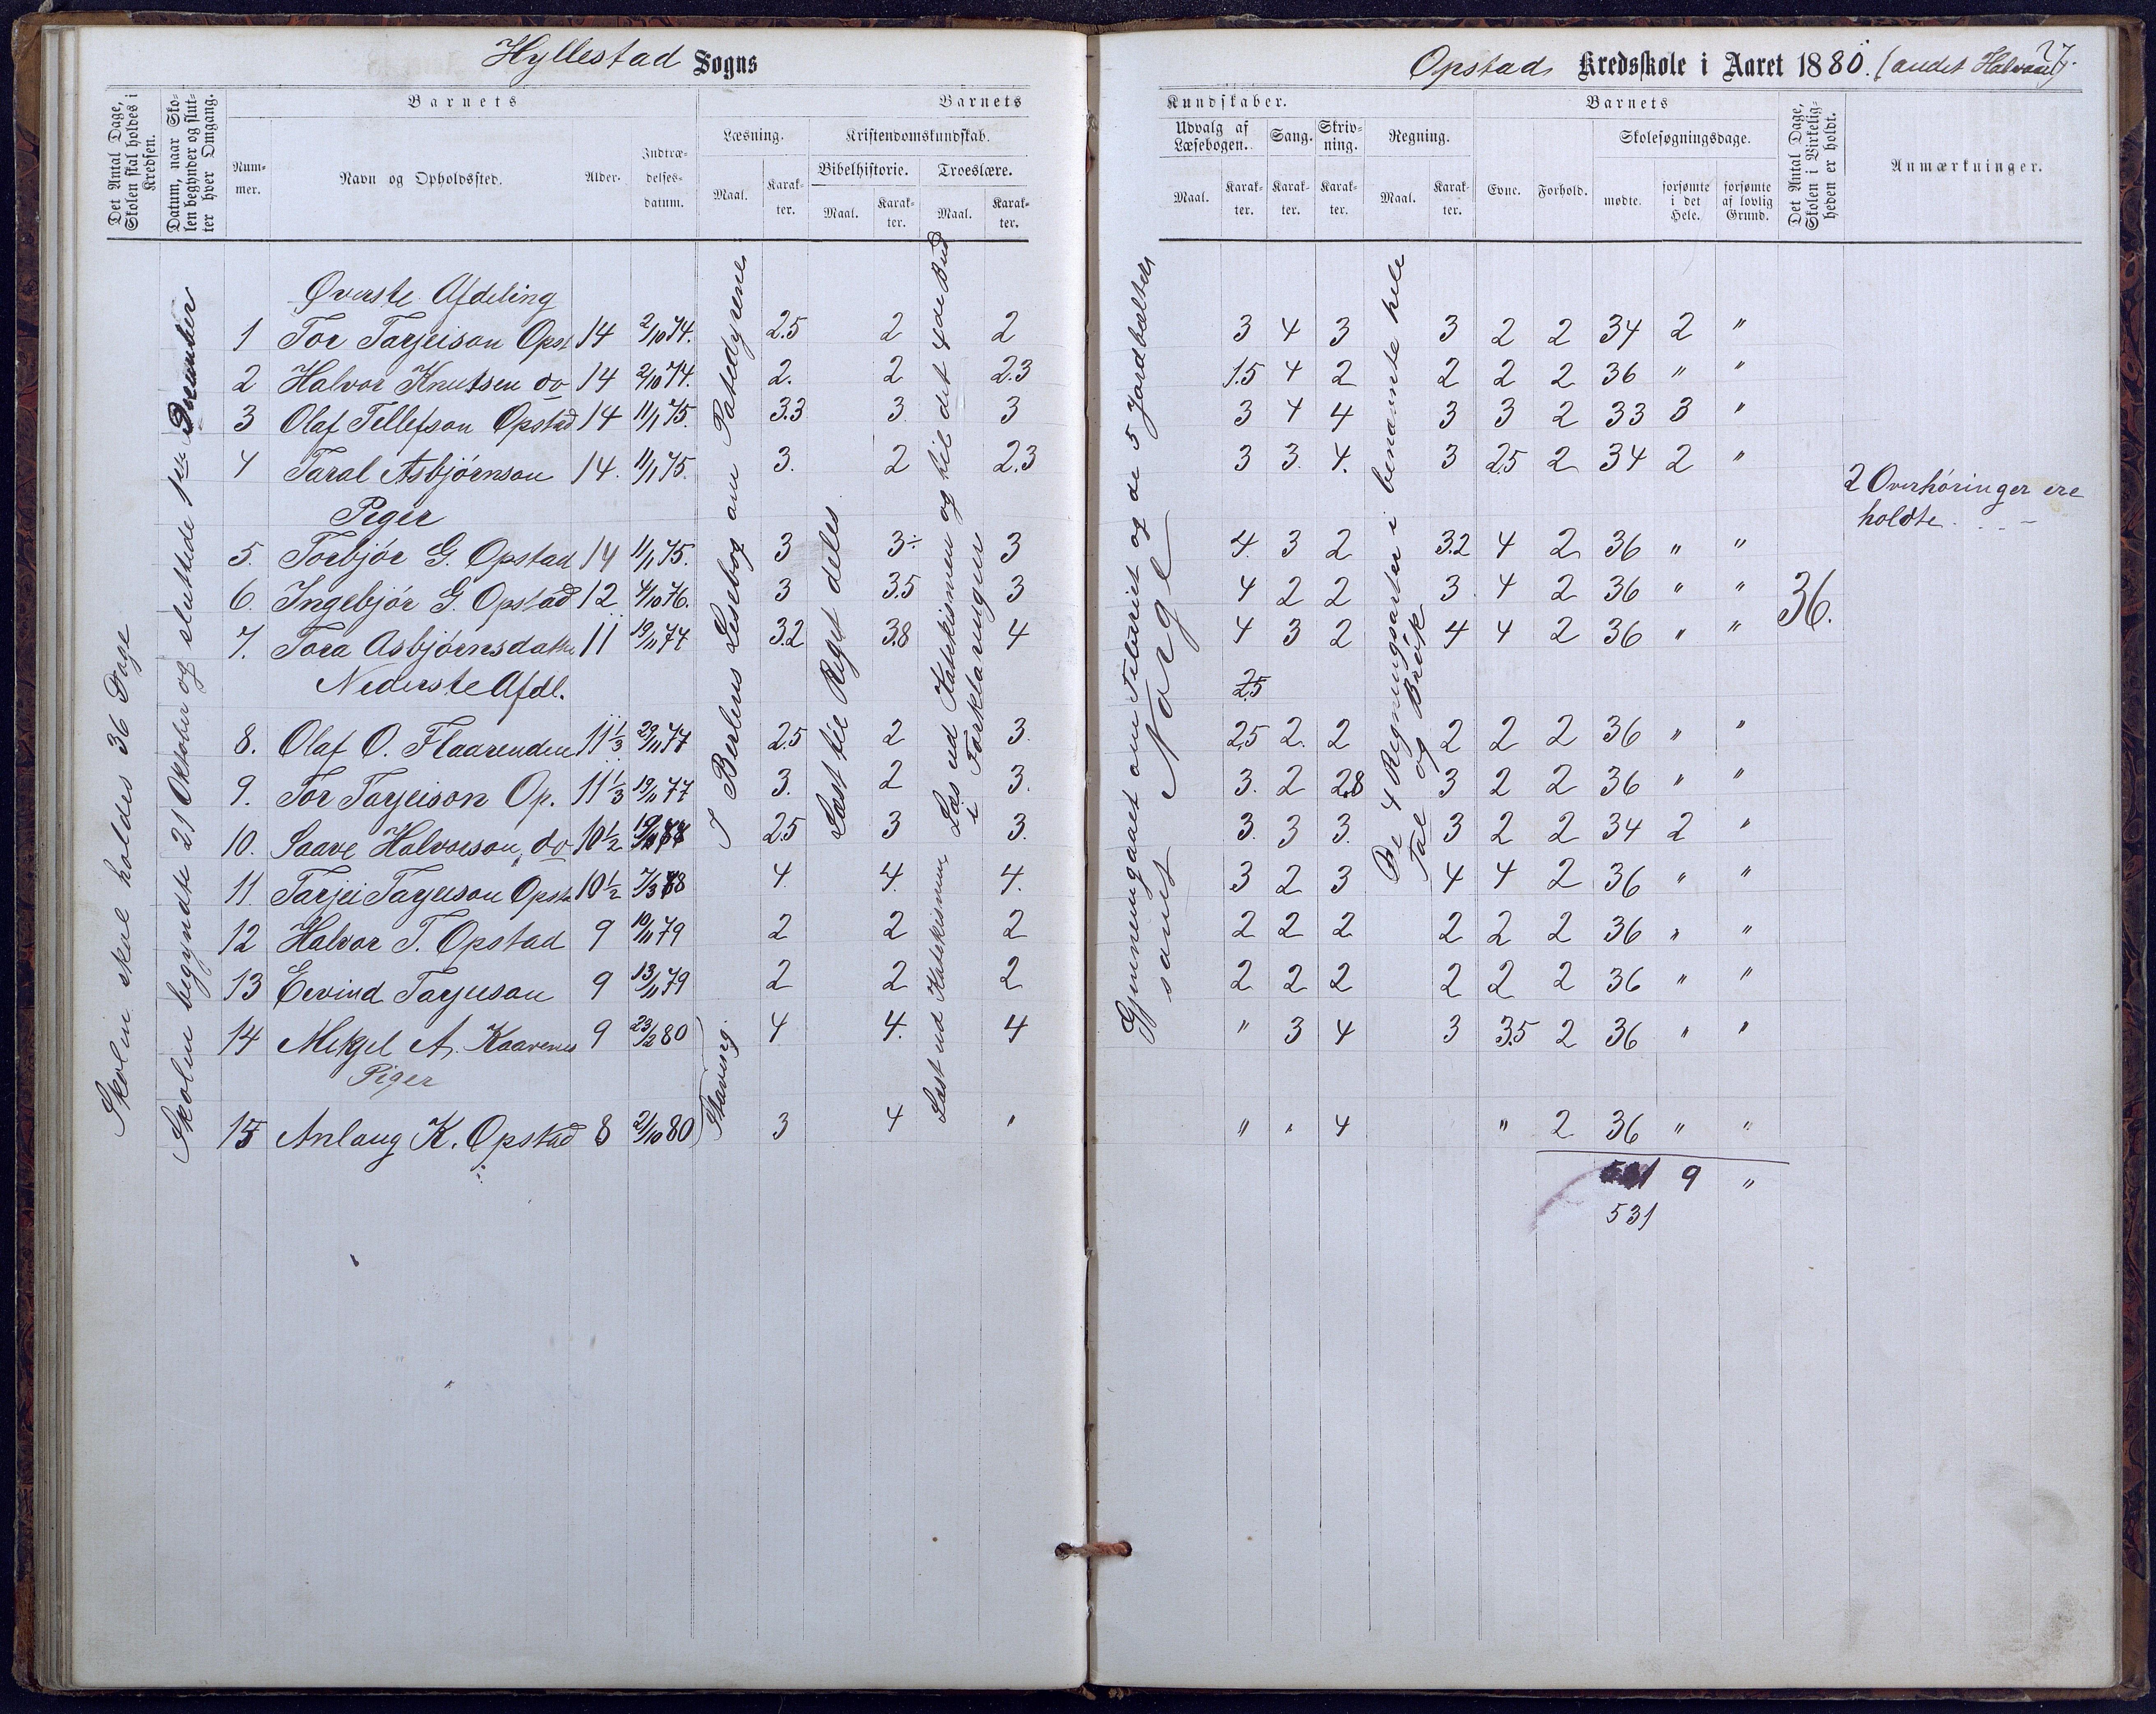 Hyllestad Sogns
Opstad Kredsskole i Aaret 1880. (andet Halvaar).
27
Det Antal Dage, Skolen skal holdes i Kredsen.
Datum, naar Skolen begynder og slutter hver Omgang.
Barnets
Nummer.
Navn og Opholdssted.
Alder.
Indtrædelsesdatum.
Barnets
Læsning.
Kristendomskundskab.
Bibelhistorie.
Troeslære.
Maal.
Karakter.
Maal.
Karakter.
Maal.
Karakter.
Kundskaber.
Udvalg af Læsebogen.
Sang.
Skrivning.
Regning.
Maal.
Karakter.
Karakter.
Karakter.
Maal.
Karakter.
Barnets
Evne.
Forhold.
Skolesøgningsdage.
mødte.
forsømte i det Hele.
forsømte af lovlig Grund.
Det Antal Dage, Skolen i Virkeligheden er holdt.
Anmærkninger.
Skolen skal holdes 36 Dage
Skolen begyndte 21 Oktober og sluttede 1ste December
I Berlins Lesebog om Patedyrene
(Staving)
Læst til Riget deles
Læs ud Katekismen og til det 4de Bud
i Forklaringen
Læst ud Katekismen
Gjennemgaaet om Teltæriet og de 5 Jordbælter
samt Norge
De 4 Regningsarter i benævnte hele
Tal og Brøk
Øverste Afdeling
1 Tor Tarjeison Opst 14 2/10 74. 2.5 2 2 3 4 3 3 2 2 34 2 "
2 Halvor Knutsen do 14 2/10 74. 2. 2 2.3 1.5 4 2 2 2 2 36 " "
3 Olaf Tellefson Opstad 14 11/1 75. 3.3 3 3 3 4 4 3 3 2 33 3 "
4 Taral Asbjørnson 14. 11/1 75. 3. 2 2.3 3 3. 4. 3 2.5 2 34 2 "
2 Overhøringer ere
holdte
Piger
5. Torbjør G. Opstad 14 11/1 75. 3 3÷ 3 4. 3 2 3.2 4 2 36 " "
6. Ingebjør G. Opstad 12 4/10 76. 3 3.5 3 4 2 2 3 4 2 36 " "
36.
7. Tora Asbjørnsdatter 11 19/11 77 3.2 3.8 4 4 3 2 4 4 2 36 " "
Nederste Afdl.
2.5
8. Olaf O. Flaarenden 11 1/3 29/11 77 2.5 2 3. 2.5 2. 2 2 2 2 36 " "
9. Tor Tarjeison Op. 11 1/3 19/11 77 3. 2 3. 3. 2 2.8 3 2 2 36 " "
10. Saave Halvorson do 10 1/2 2.5 3 3. 3. 3 3. 3 2 2 34 2 "
11 Tarjei Tarjeison Opst 10 1/2 7/3 78 4. 4. 4. 3 2 3 4 4 2 36 " "
12 Halvor T. Opstad 9 10/11 79 2 2 2 2 2 2 2 2 2 36 " "
13 Eivind Tarjeison 9 13/11 79 2 2 2 2 2 2 2 2 2 36 " "
14 Mikjel A. Kaavenes 9 23/2 80 4 4. 4 " 3 4 3 3.5 2 36 " "
Piger
15 Anlaug K. Opstad 8 21/10 80 3 4 " " " 4 " 2 36 " "
9 "
531